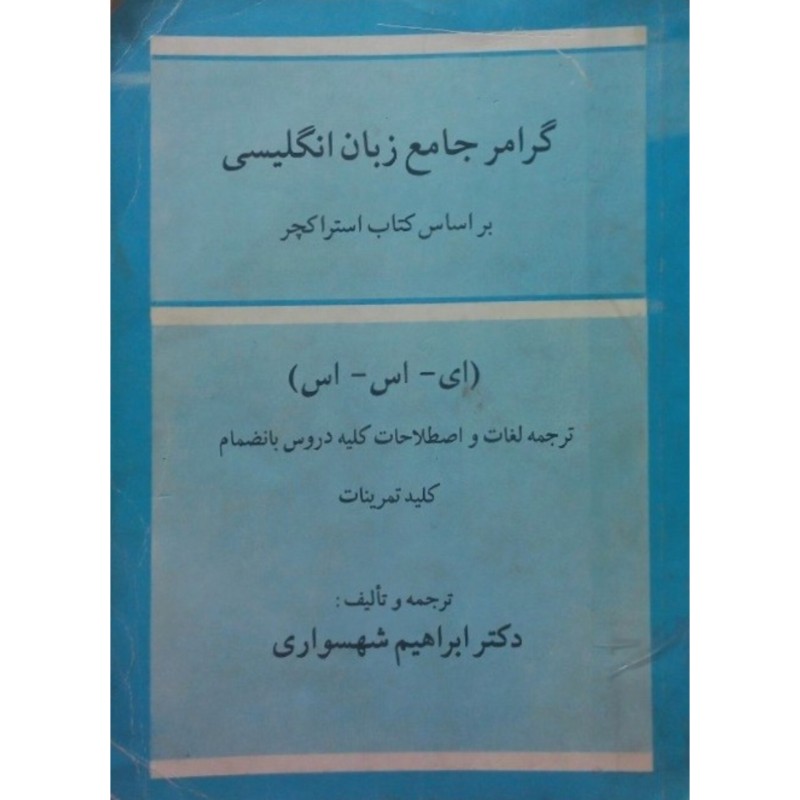 گرامر جامع زبان انگلیسی
بر اساس کتاب استراکچر
(ای - اس - اس)
ترجمه لغات و اصطلاحات کلیه دروس بانضمام
کلید تمرینات
ترجمه و تألیف:
دکتر ابراهیم شهسواری